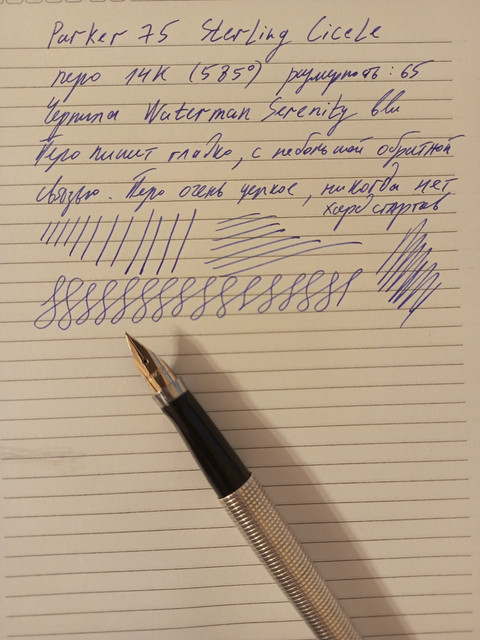 Parker 75 Sterling Cicele
перо 14К (585°) размерность: 65
Чернила Waterman Serenity blu
Перо пишет гладко, с небольшой обратной
связью. Перо очень чуткое, никогда нет
хардстартов